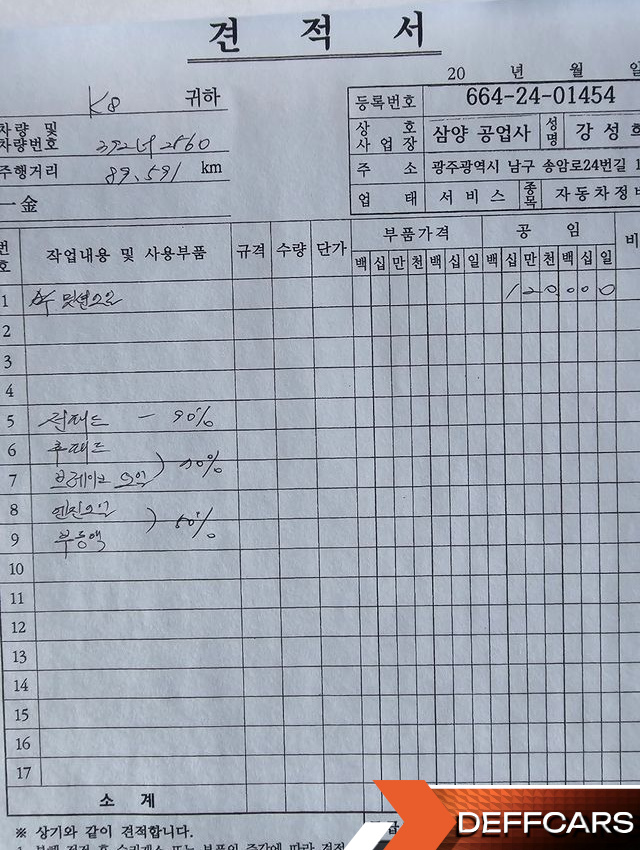 견 적 서
20 년 월 일
K8 귀하
등록번호 664-24-01454
차량 및
차량번호
상 호
사 업 장 삼양 공업사 성명 강 성
주행거리 89,591 km
주 소 광주광역시 남구 송암로24번길 1
一金
업 태 서 비 스 종목 자동차정비
번호 작업내용 및 사용부품 규격 수량 단가 부품가격 공 임 비
백 십 만 천 백 십 일 백 십 만 천 백 십 일
1 미션오일 120,000
2
3
4
5 전패드 - 90%
6 후패드
7 브레이크 오일 ) 70%
8 엔진오일
9 부동액 ) 60%
10
11
12
13
14
15
16
17
소 계
※ 상기와 같이 견적합니다.
DEFFCARS